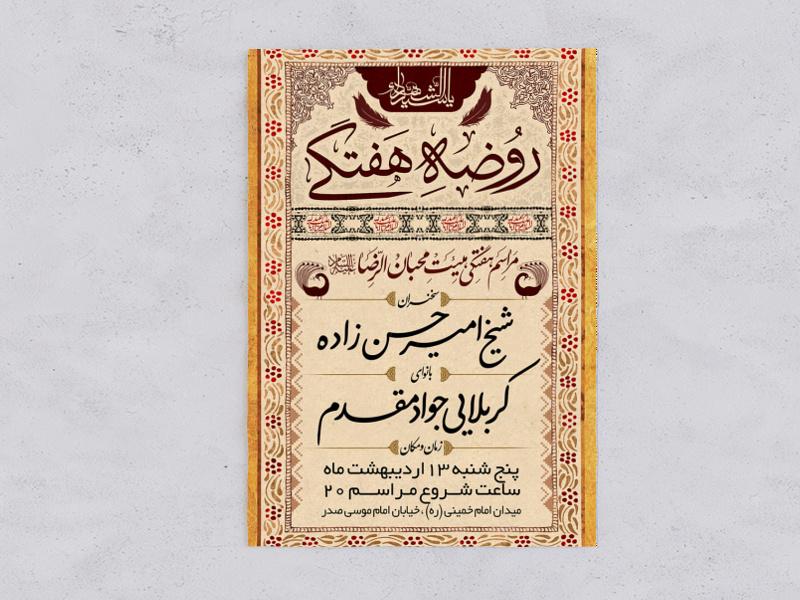 روضه هفتگی
مراسم هفتگی هیئت محبان الرضا علیه السلام
سخنران
شیخ امیر حسن زاده
بانوای
کربلایی جواد مقدم
زمان و مکان
پنج شنبه ۱۳ اردیبهشت ماه
ساعت شروع مراسم ۲۰
میدان امام خمینی (ره) ، خیابان امام موسی صدر